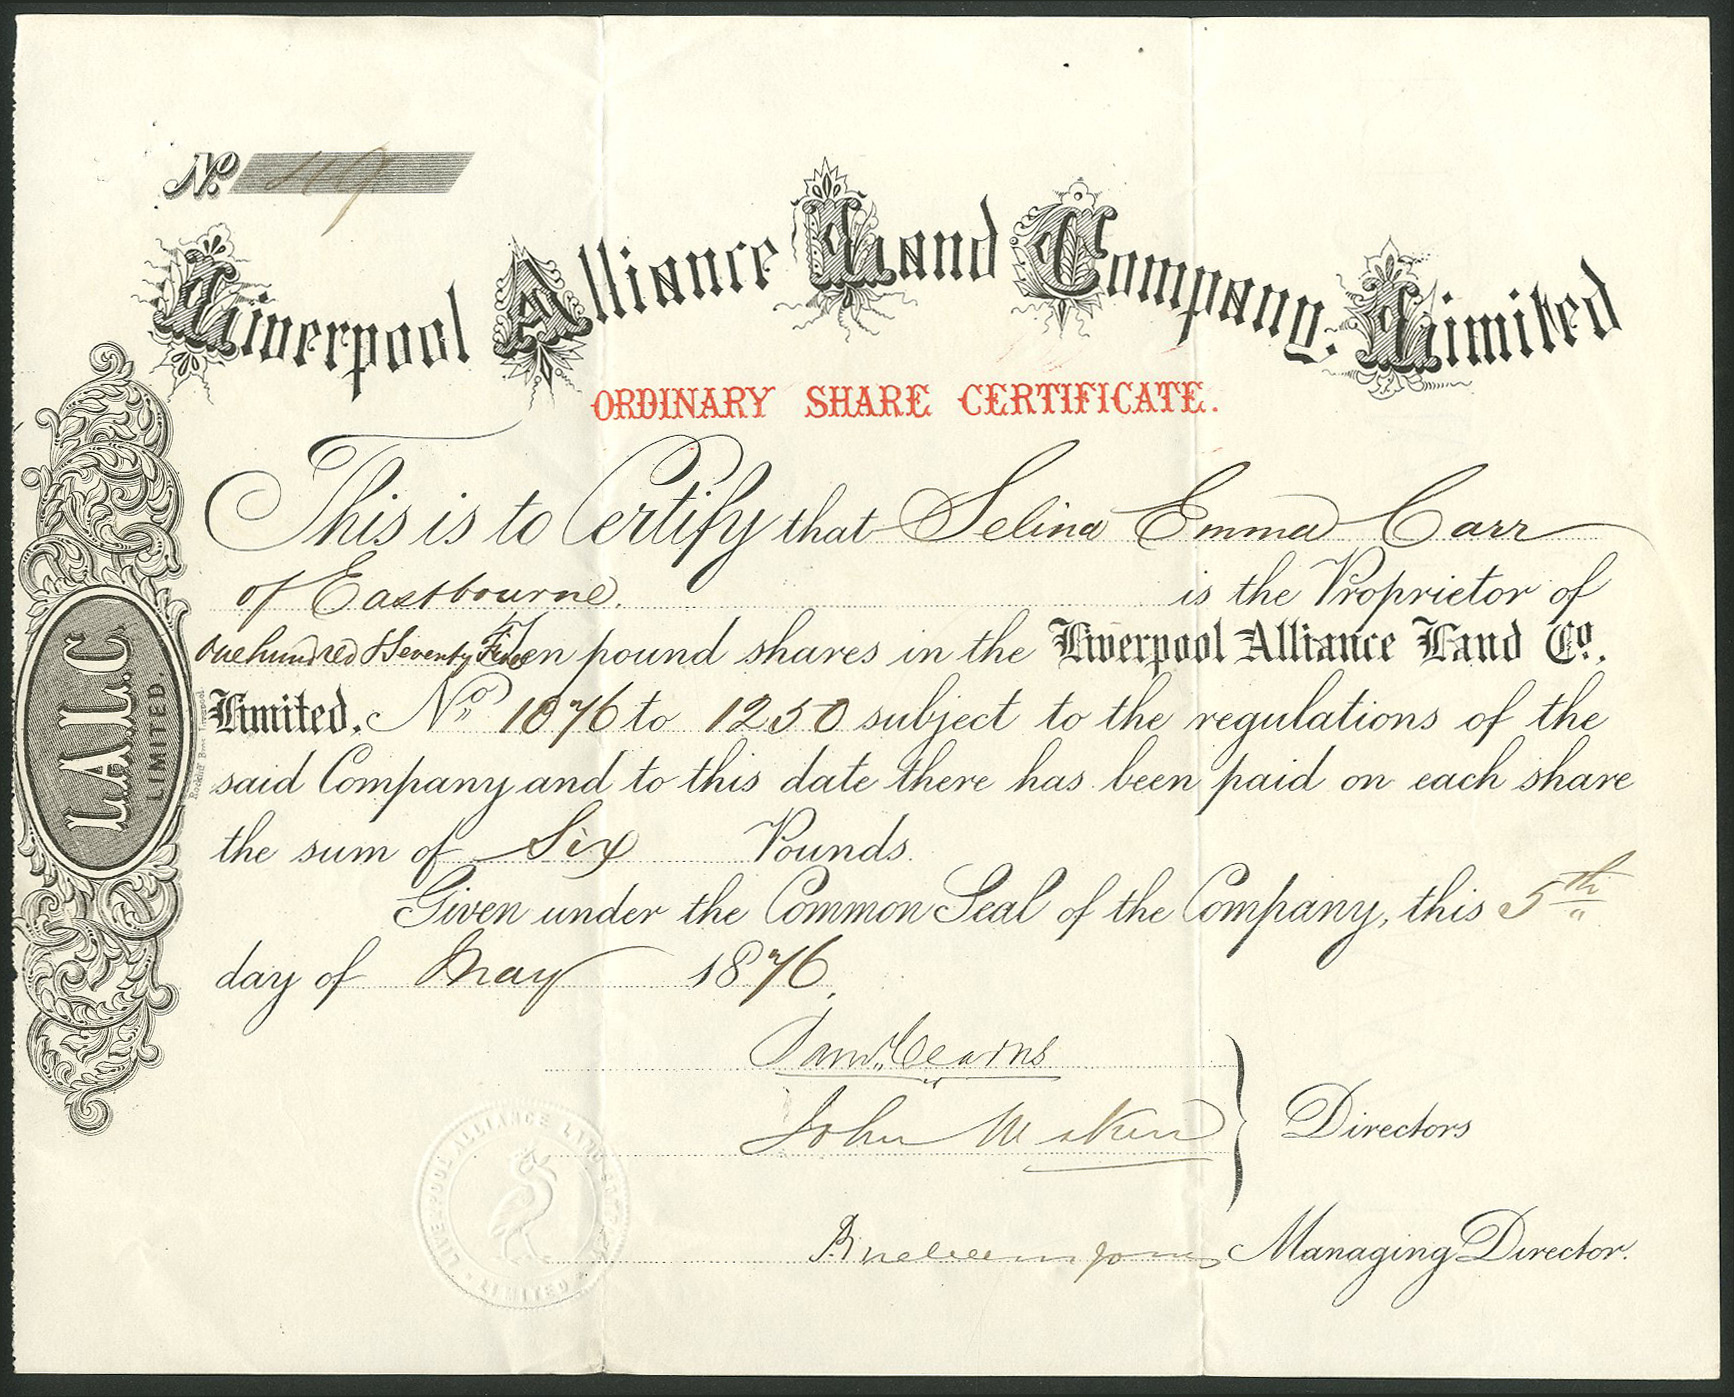 No. 119
Liverpool Alliance Land Company, Limited
ORDINARY SHARE CERTIFICATE.
This is to Certify that Selina Emma Carr
of Eastbourne. is the Proprietor of
One hundred & Seventy Five Ten pound shares in the Liverpool Alliance Land Co.
Limited, Nos. 1076 to 1250 subject to the regulations of the
said Company and to this date there has been paid on each share
the sum of Six Pounds.
Given under the Common Seal of the Company, this 5th
day of May 1876.
John
Directors
Managing Director.
L.A.L.C.
LIMITED.
LIVERPOOL ALLIANCE LAND
LIMITED